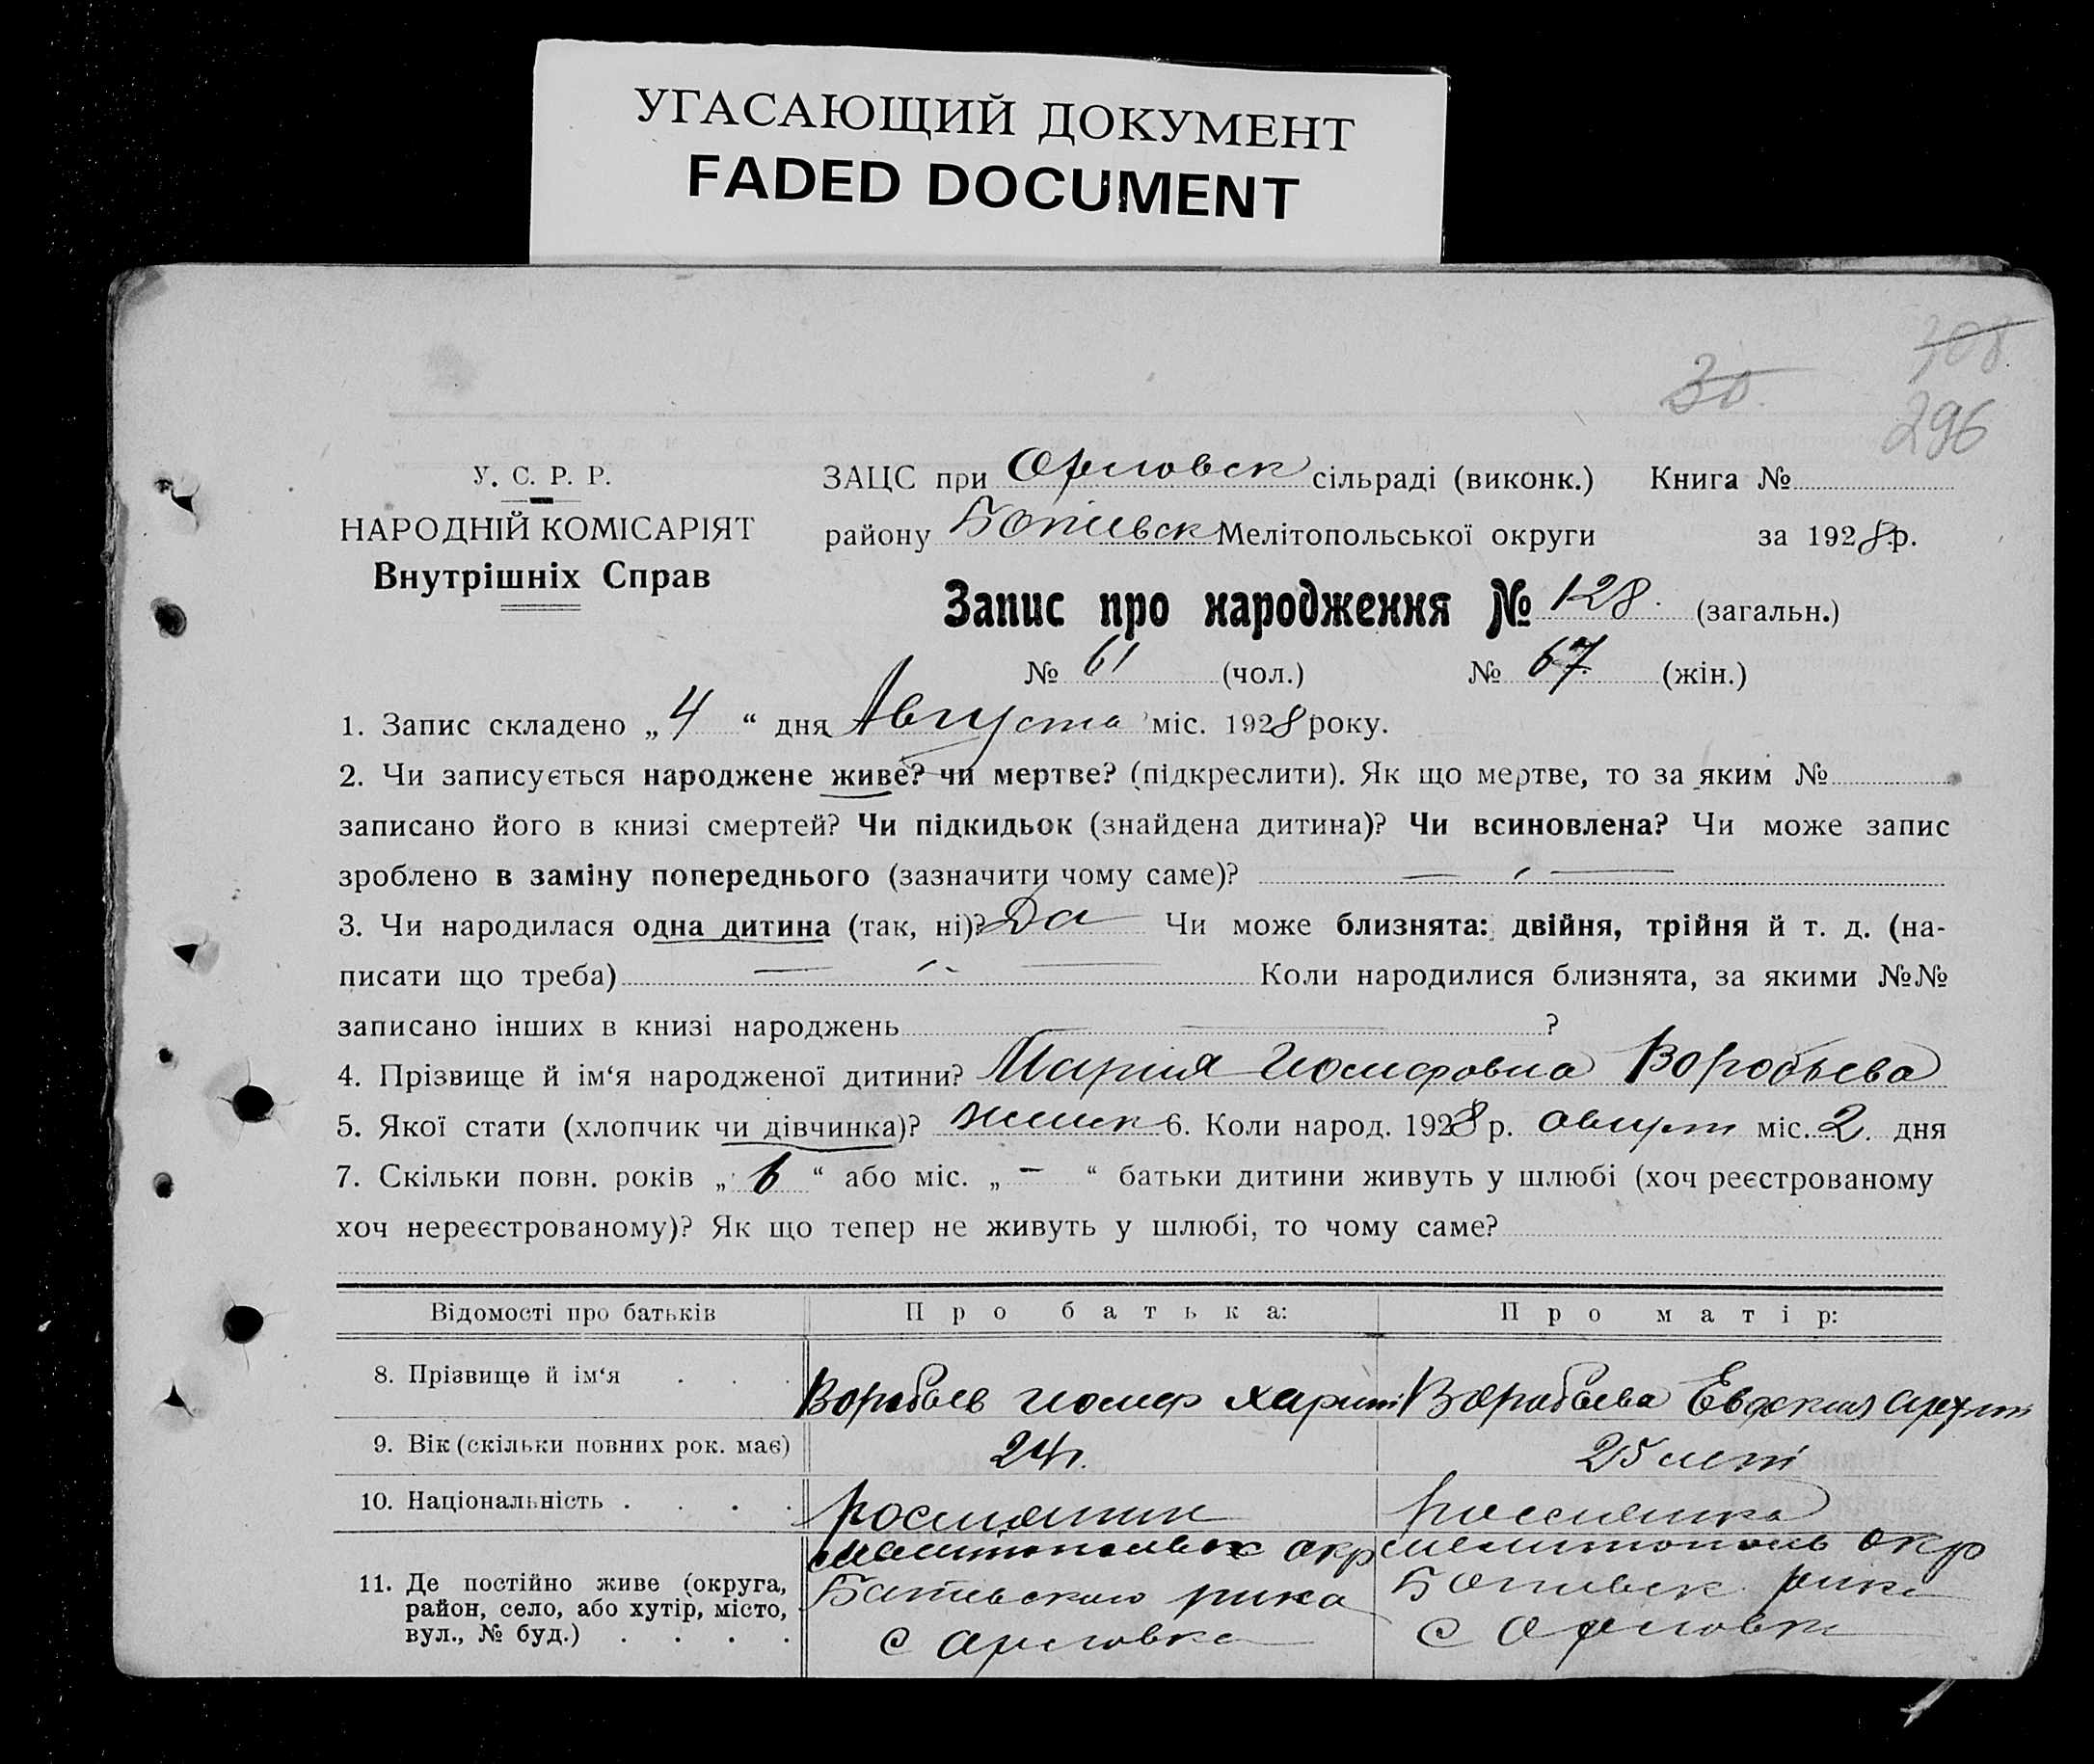 УГАСАЮЩИЙ ДОКУМЕНТ
FADED DOCUMENT
308
30.
296
У. С. Р. Р.
НАРОДНІЙ КОМІСАРІЯТ
Внутрішніх Справ
ЗАЦС при Орловск сільраді (виконк.) Книга №
району Ботіевск Мелітопольської округи за 1928 р.
Запис про народження № 128. (загальн.)
№ 61 (чол.) № 67 (жін.)
1. Запис складено „ 4 “ дня Августа міс. 1928 року.
2. Чи записується народжене живе? чи мертве? (підкреслити). Як що мертве, то за яким №
записано його в книзі смертей? Чи підкидьок (знайдена дитина)? Чи всиновлена? Чи може запис
зроблено в заміну попереднього (зазначити чому саме)? —
3. Чи народилася одна дитина (так, ні)? Да Чи може близнята: двійня, трійня й т. д. (на-
писати що треба) — Коли народилися близнята, за якими №№
записано інших в книзі народжень — ?
4. Прізвище й ім‘я народженої дитини? Мария Иосифовна Воробьева
5. Якої стати (хлопчик чи дівчинка)? женск 6. Коли народ. 1928 р. август міс. 2. дня
7. Скільки повн. років „ 6 “ або міс. „ – “ батьки дитини живуть у шлюбі (хоч реєстрованому
хоч нереєстрованому)? Як що тепер не живуть у шлюбі, то чому саме?
Відомості про батьків Про батька: Про матір:
8. Прізвище й ім‘я . . . Воробьев Иосиф Харит Воробьева Евдокия
9. Вік (скільки повних рок. має) 24 г. 25 лет
10. Національність . . . . россиянин россиянка
11. Де постійно живе (округа, район, село, або хутір, місто, вул., № буд.) . . . .
Мелитопольск окр Мелитополь окр
Ботиевского рика Ботиевск рика
с Орловка с Орловка